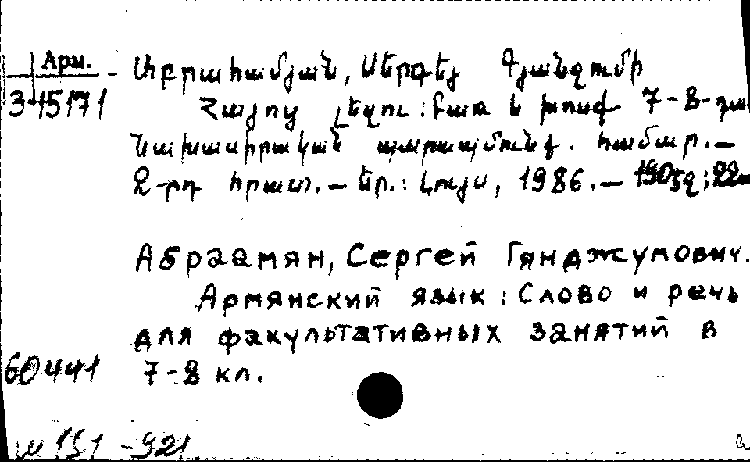 Арм.
3-15171
Աբրահամյան, Սերգեյ Գյանջումի
Հայոց լեզու : Բառ և խոսք 7-8-
նախասիրական պարապմունք. համար.—
2-րդ հրատ.— Եր.: Լույս, 1986.— 190էջ;22սմ
Абраамян, Сергей Гянджумович.
Армянский язык : Слово и речь
для факультативных занятий в
60441 7-8 кл.
-921